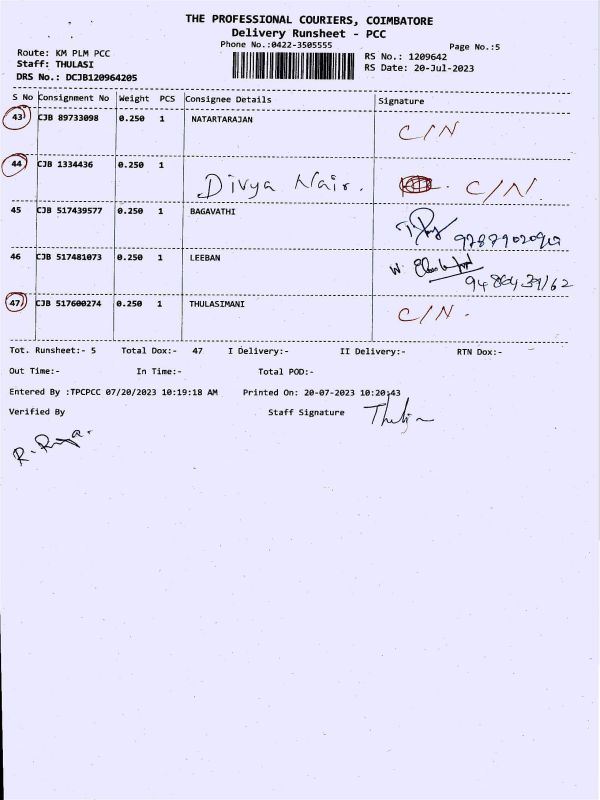 THE PROFESSIONAL COURIERS, COIMBATORE
Delivery Runsheet - PCC
Phone No.:0422-3505555
Page No.:5
Route: KM PLM PCC
RS No.: 1209642
Staff: THULASI
RS Date: 20-Jul-2023
DRS No.: DCJB120964205
S No Consignment No Weight PCS Consignee Details Signature
43 CJB 89733098 0.250 1 NATARTARAJAN C/N
44 CJB 1334436 0.250 1 Divya Nair. C/N.
45 CJB 517439577 0.250 1 BAGAVATHI
46 CJB 517481073 0.250 1 LEEBAN W.
47 CJB 517600274 0.250 1 THULASIMANI C/N.
Tot. Runsheet:- 5 Total Dox:- 47 I Delivery:- II Delivery:- RTN Dox:-
Out Time:- In Time:- Total POD:-
Entered By :TPCPCC 07/20/2023 10:19:18 AM Printed On: 20-07-2023 10:20:43
Verified By Staff Signature